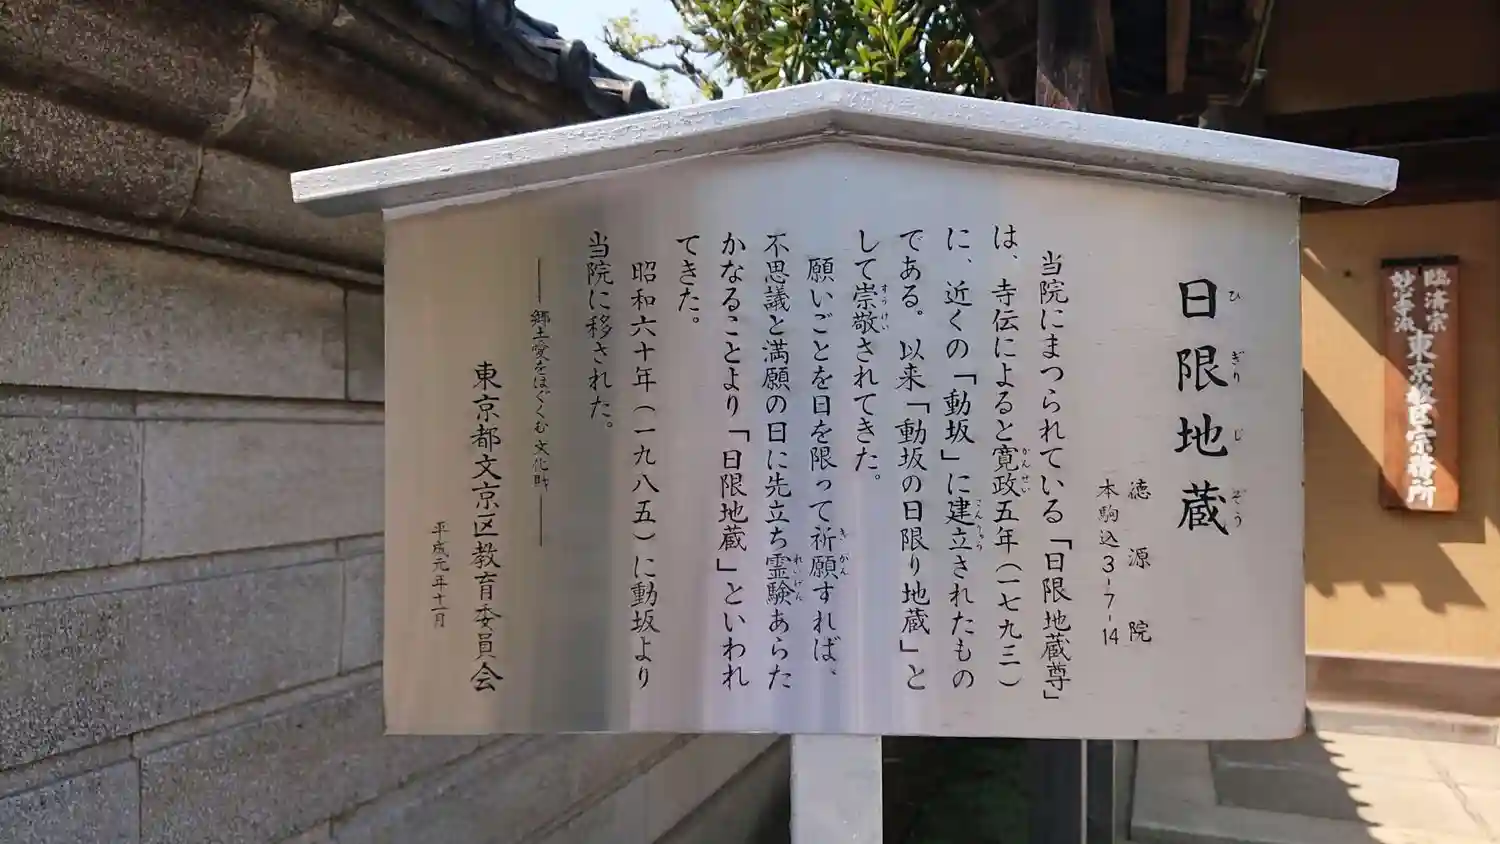 日限地蔵
ひぎりじぞう
徳源院
本駒込3-7-14
当院にまつられている「日限地蔵尊」
は、寺伝によると寛政五年(一七九三)
かんせい
に、近くの「動坂」に建立されたもの
こんりゅう
である。以来「動坂の日限り地蔵」と
して崇敬されてきた。
すうけい
願いごとを日を限って祈願すれば、
きがん
不思議と満願の日に先立ち霊験あらた
れいげん
かなることより「日限地蔵」といわれ
てきた。
昭和六十年(一九八五)に動坂より
当院に移された。
―郷土愛をはぐくむ文化財―
東京都文京区教育委員会
平成元年十一月
臨済宗
妙心寺派
東京教区宗務所